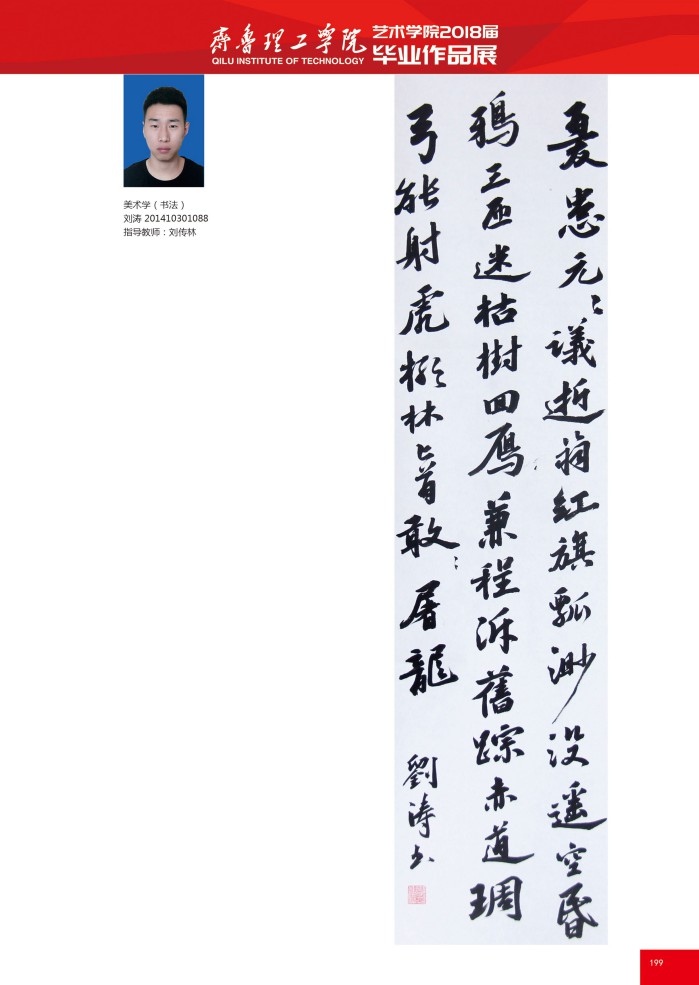 齐鲁理工学院
QILU INSTITUTE OF TECHNOLOGY
艺术学院2018届
毕业作品展
美术学（书法）
刘涛 201410301088
指导教师：刘传林
憂患元〻議逝翁紅旗瓢渺没遥空昏
鴉三匝迷枯樹回雁兼程泝舊踪赤道琱
弓能射虎椰林匕首敢屠龍
劉濤书
199